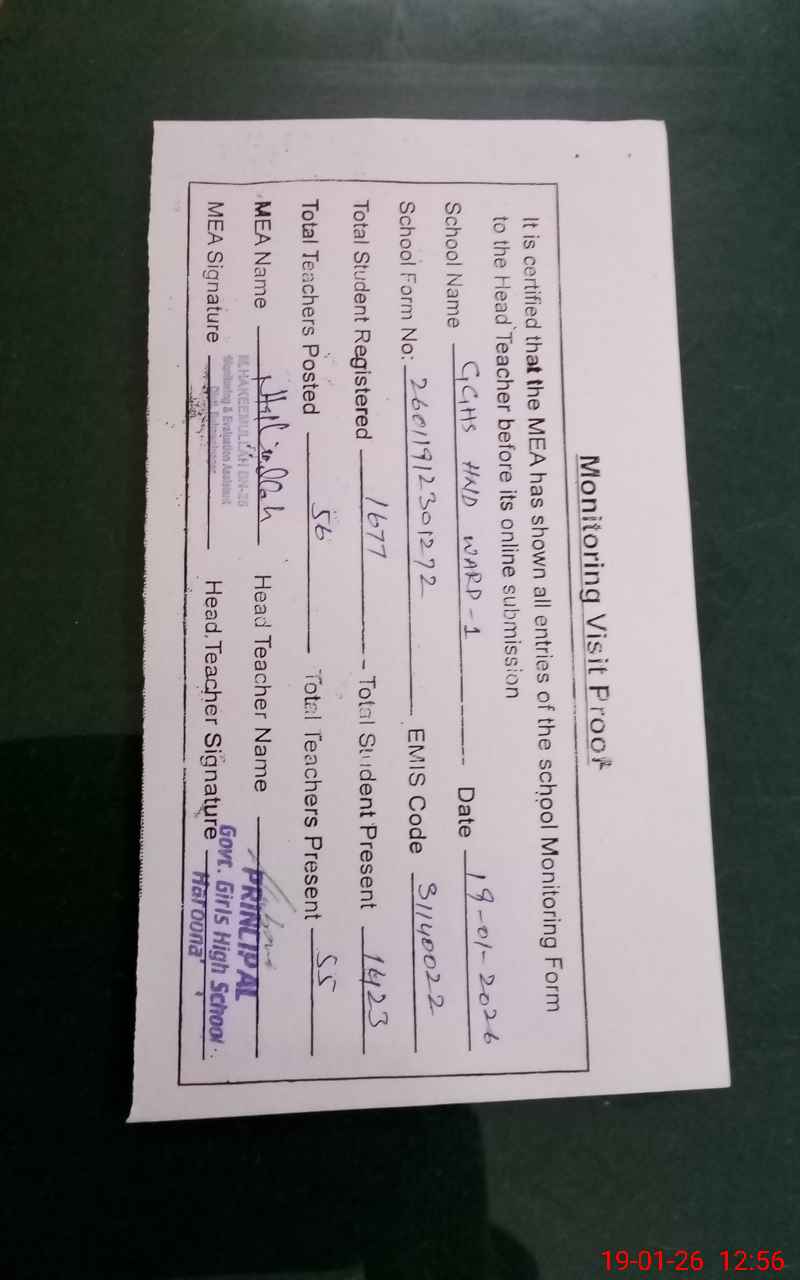 Monitoring Visit Proof
It is certified that the MEA has shown all entries of the school Monitoring Form
to the Head Teacher before its online submission
School Name GGHS HND WARD-1 Date 19-01-2026
School Form No: 26011912301272 EMIS Code 31140022
Total Student Registered 1677 Total Student Present 1423
Total Teachers Posted 56 Total Teachers Present 55
MEA Name Head Teacher Name
M.HAKEEMULLAH
Monitoring & Evaluation Assistant
MEA Signature Head Teacher Signature
PRINCIPAL
Govt. Girls High School
Haroona
19-01-26 12:56